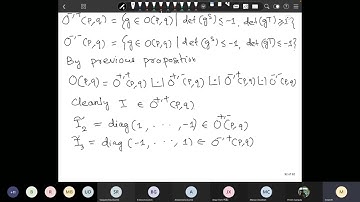 O^{-,+}(p,q) = {g ∈ O(p,q) | det(g^S) ≤ -1, det(g^T) ≥ 1}
O^{-,-}(p,q) = {g ∈ O(p,q) | det(g^S) ≤ -1, det(g^T) ≤ -1}
By previous proposition
O(p,q) = O^{+,+}(p,q) ⊔ O^{+,-}(p,q) ⊔ O^{-,+}(p,q) ⊔ O^{-,-}(p,q)
Clearly I ∈ O^{+,+}(p,q)
Ĩ₂ = diag(1, ..., -1) ∈ O^{+,-}(p,q)
Ĩ₃ = diag(-1, ..., 1) ∈ O^{-,+}(p,q)
R
B
M
UD
S
BG
A
J
S
A
M